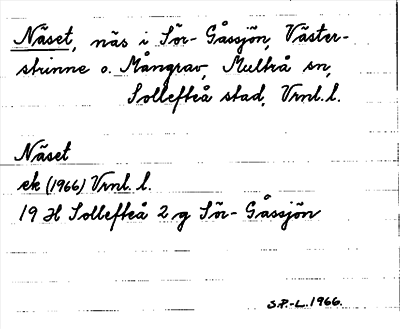 Näset, näs i Sör-Gåssjön, Väster-
strinne o. Mångrav, Multrå sn,
Sollefteå stad, Vrnl. l.
Näset
ek (1966) Vrnl. l.
19 H Sollefteå 2 g Sör-Gåssjön
S.P.-L. 1966.